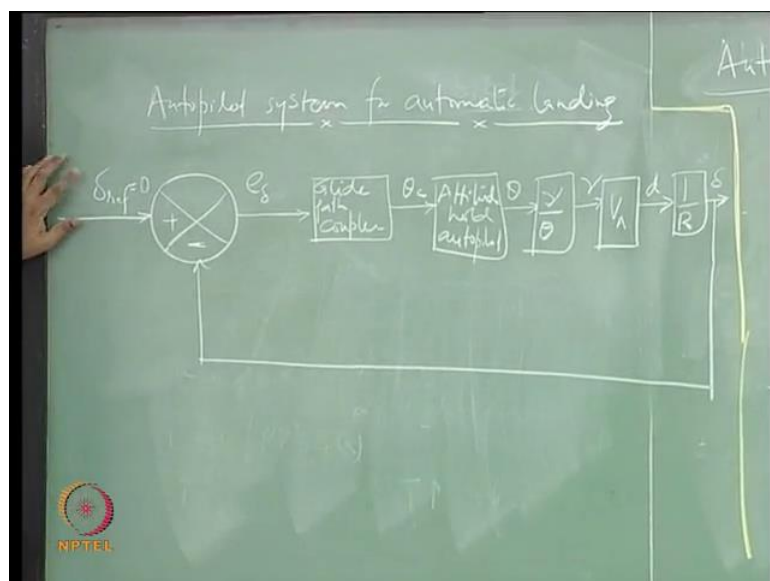 Aut
Autopilot system for automatic landing
δref=0
+
-
eδ
Glide path coupler
θc
Attitude hold autopilot
θ
γ/θ
γ
d
1/R
δ
NPTEL